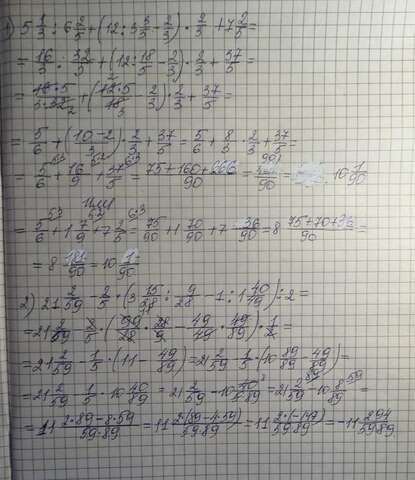 1) 5 1/3 : 6 2/5 + (12 : 3 3/5 - 2/3) · 2/3 + 7 2/5 =
= 16/3 : 32/5 + (12 : 18/5 - 2/3) · 2/3 + 37/5 =
= 16·5/3·32 2 + (12·5/18 3 - 2/3) · 2/3 + 37/5 =
= 5/6 + (10-2/3) · 2/3 + 37/5 = 5/6 + 8/3 · 2/3 + 37/5 =
= 5/6 + 16/9 + 37/5 = 75+160+666/90 = 901/90 = 10 1/90
или
= 5/6 + 1 7/9 + 7 2/5 = 75/90 + 1 70/90 + 7 36/90 = 8 75+70+36/90 =
= 8 181/90 = 10 1/90
2) 21 2/59 - 2/5 · (3 15/28 : 9/28 - 1 : 1 40/49) : 2 =
= 21 2/59 - 2/5 · (99/28 · 28/9 - 49/49 · 49/89) · 1/2 =
= 21 2/59 - 1/5 · (11 - 49/89) = 21 2/59 - 1/5 · (10 89/89 - 49/89) =
= 21 2/59 - 1/5 · 10 40/89 = 21 2/59 - 10 40/5·89 = 21 2/59 - 10 8/89 =
= 11 2·89-8·59/59·89 = 11 2(89-4·59)/59·89 = 11 2·(-147)/59·89 = -11 294/59·89